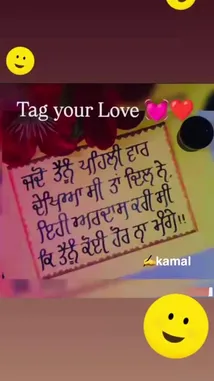 Tag your Love 💓❤️
ਜਦੋਂ ਤੈਨੂੰ ਪਹਿਲੀ ਵਾਰ
ਦੇਖਿਆ ਸੀ ਤਾਂ ਦਿਲ ਨੇ
ਇਹੀ ਅਰਦਾਸ ਕਰੀ ਸੀ
ਕਿ ਤੈਨੂੰ ਕੋਈ ਹੋਰ ਨਾ ਮੰਗੇ!!
✍️kamal